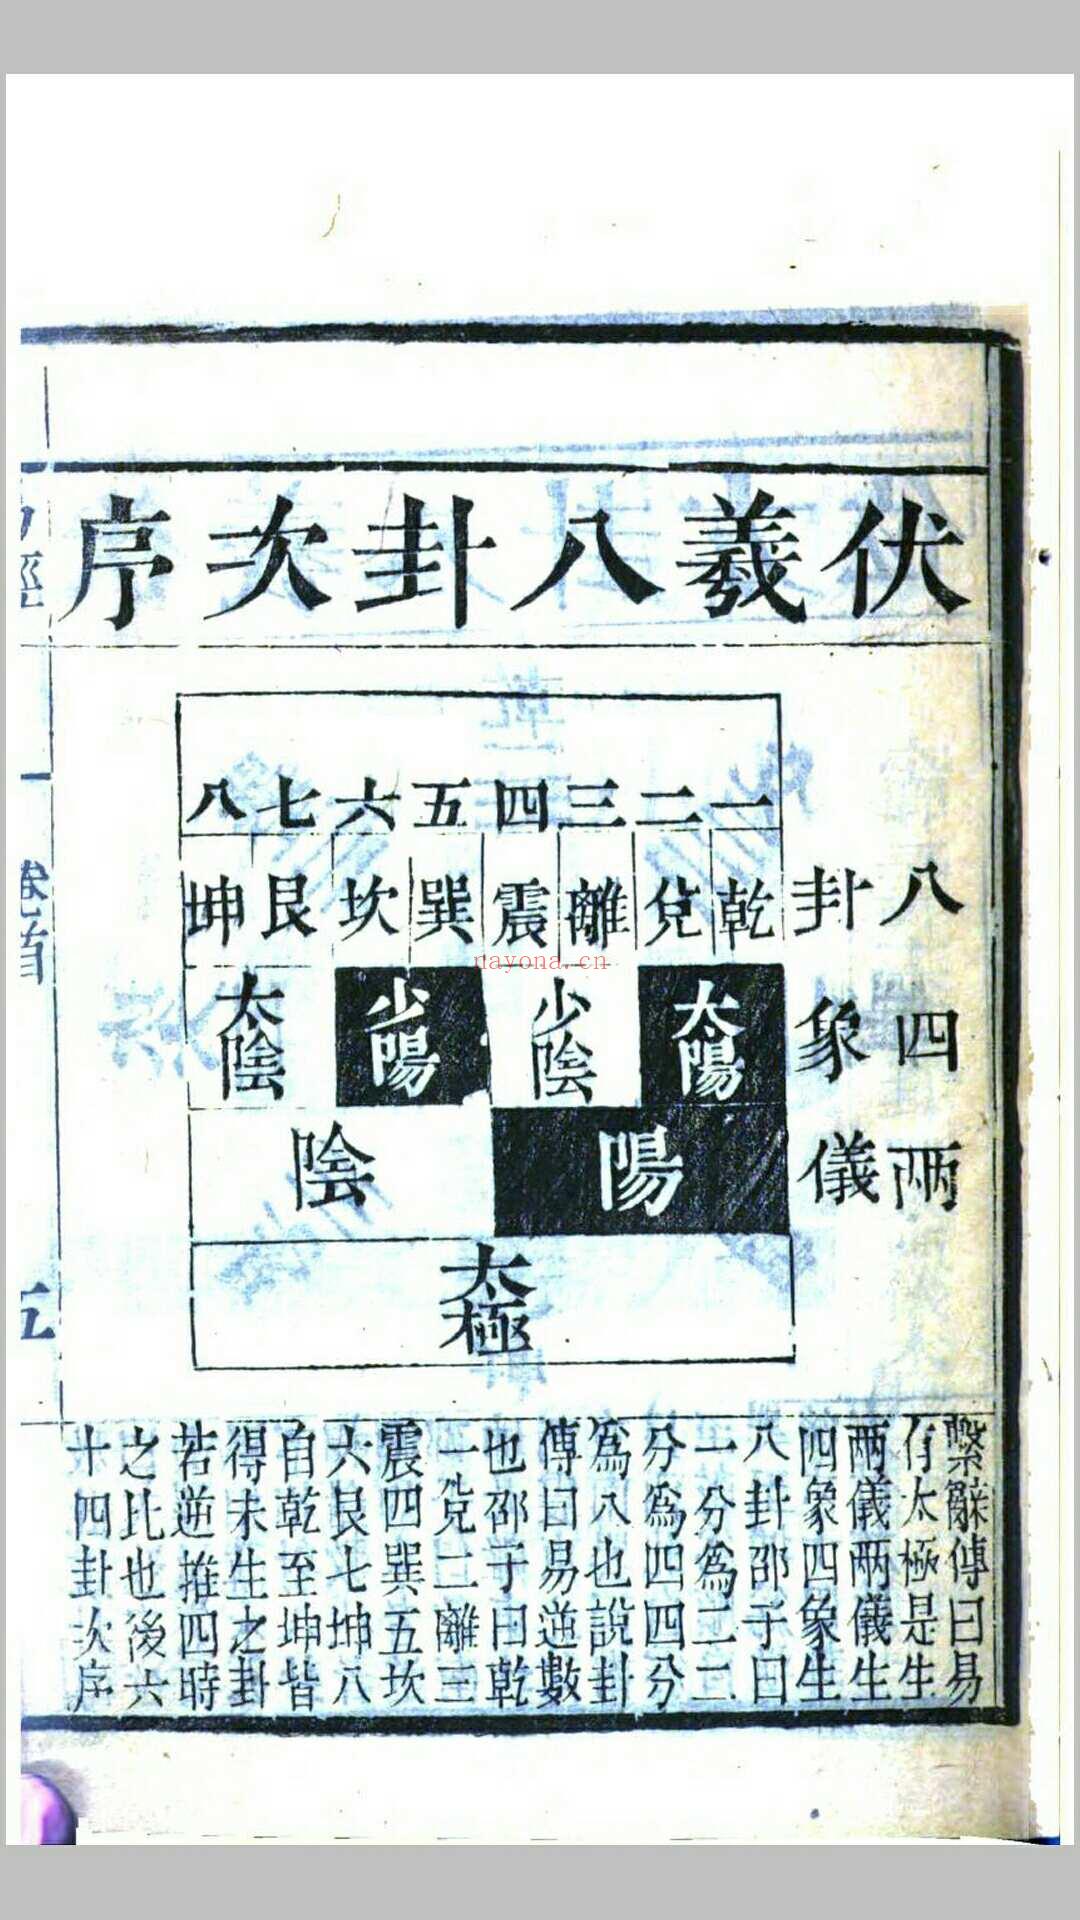 伏羲八卦次序
一二三四五六七八
乾兌離震巽坎艮坤
八卦
太陽
少陰
少陽
太陰
四象
陽
陰
兩儀
太極
繫辭傳曰易
有太極是生
兩儀兩儀生
四象四象生
八卦邵子曰
一分為二二
分為四四分
為八也說卦
傳曰易逆數
也邵子曰乾
一兌二離三
震四巽五坎
六艮七坤八
自乾至坤皆
得未生之卦
若逆推四時
之比也後六
十四卦次序
卷首
五
nayona.cn